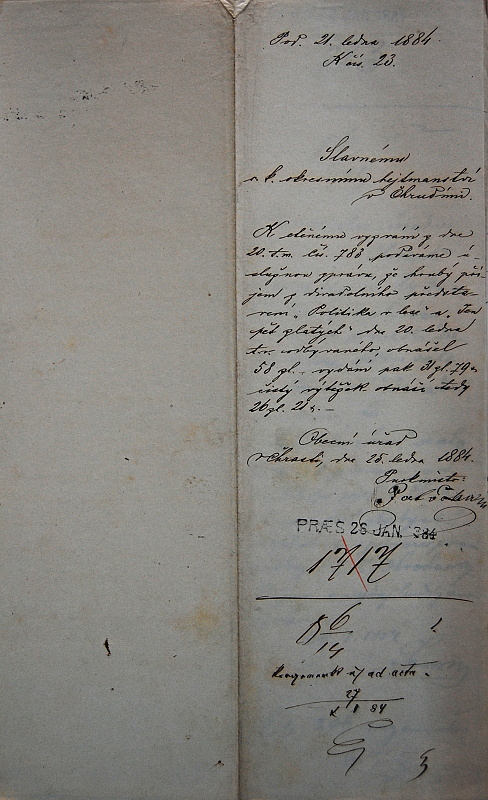 Pod. 21. ledna 1884.
N čís. 23.
Slavnému
c. k. okresnímu hejtmanství
v Chrudimi.
K ctěnému vyzvání z dne
20. t. m. čís. 783 podáváme
slušnou zprávu, že hrubý pří-
jem z divadelního předsta-
vení „Politika v lese" a „Ten
pět zlatých" dne 20. ledna
t. r. odbývaného, obnášel
58 zl. – vydání pak 31 zl. 79
čistý výtěžek obnáší tedy
26 zl. 21 –
Obecní úřad
v Chrasti, dne 25. ledna 1884.
Purkmistr:
PRÆS 26 JAN. 884
1717
6
14
ad acta.
27
1 84